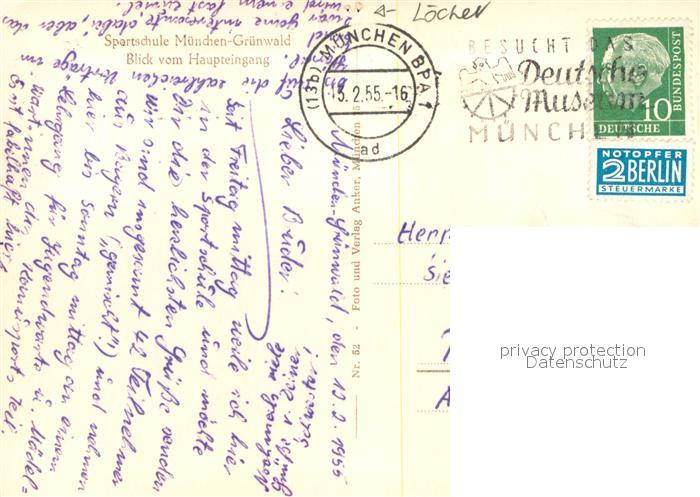 Löcher
Sportschule München-Grünwald
Blick vom Haupteingang
(13b) MÜNCHEN BPA 1
13.2.55.-16
ad
BESUCHT DAS
Deutsche
Museum
MÜNCHEN
10
DEUTSCHE BUNDESPOST
NOTOPFER
2 BERLIN
STEUERMARKE
Nr. 52 - Foto und Verlag Anker, München 15
München-Grünwald, den 13.2.1955
Lieber Bruder!
Seit Freitag mittag weile ich hier
in der Sportschule und möchte
Dir die herzlichsten Grüße senden
Wir sind insgesamt 42 Teilnehmer
aus Bayern ("gemischt") und nehmen
hier bis Sonntag mittag an einem
Lehrgang für Jugendwarte u. Mädel=
wartinnen des
teil.
Ist fabelhaft hier!
auf die zahlreichen Vorträge im
zwar ganz interessante dabei, aber das
einem fast zuviel.
Gruß
Herrn
Sie
privacy protection
Datenschutz